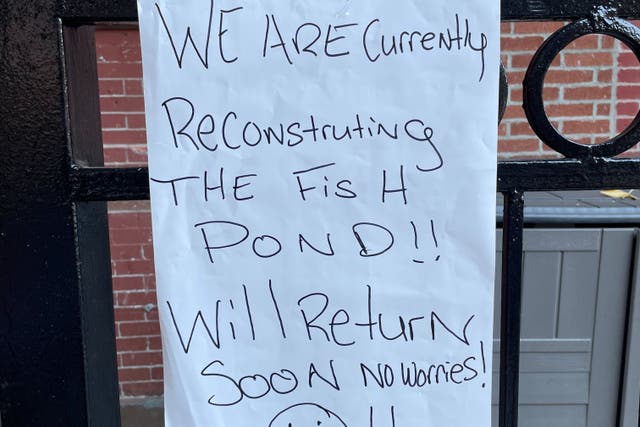 WE ARE Currently
ReConstruting
THE FisH
POND!!
Will Return
SOON No Worries!